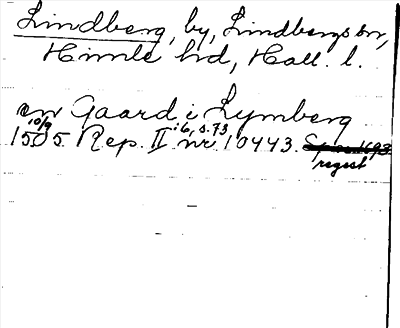 Lindberg, by, Lindbergs sn,
Himle hd, Hall. l.
en Gaard i Lymberg
10/9 1505 Rep. II :6, s. 73 nr 10443.
regest